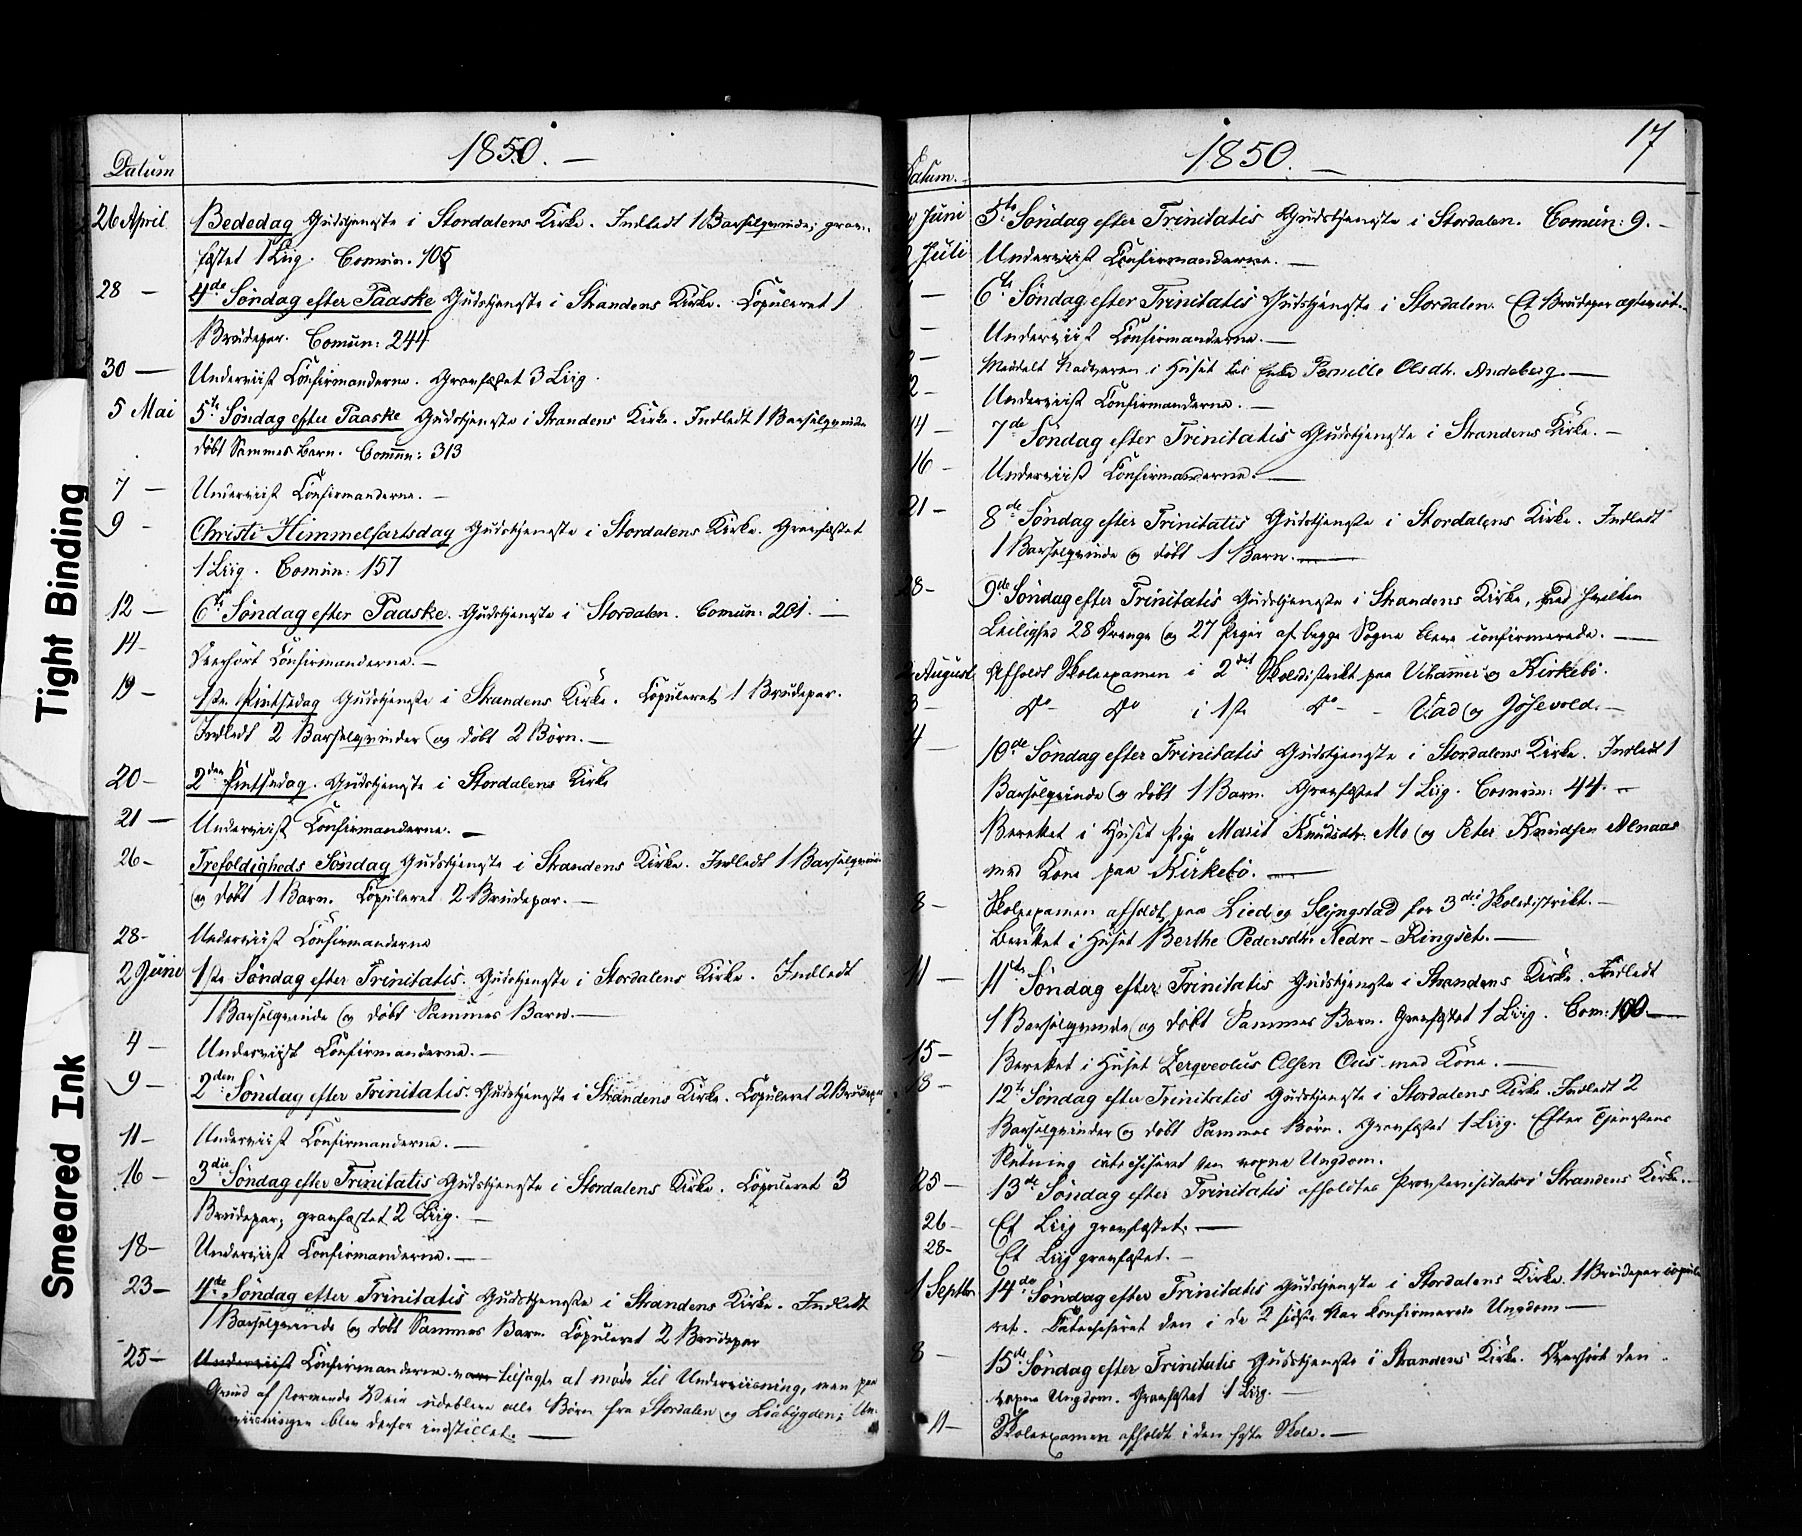 Tight Binding
Smeared Ink
Datum
1850. —
26 April Bededag Gudstjeneste i Stordalens Kirke. Indledt 1 Barselqvinde; grav-
fæstet 1 Liig. Comun. 105
28 — 4de Søndag efter Paaske Gudstjeneste i Strandens Kirke. Copuleret 1
Brudepar. Comun: 244
30 — Underviist Confirmanderne. Gravfæstet 3 Liig.
5 Mai 5te Søndag efter Paaske Gudstjeneste i Strandens Kirke. Indledt 1 Barselqvinde
døbt Sammes Barn. Comun: 313
7 — Underviist Confirmanderne. —
9 — Christi Himmelfartsdag Gudstjeneste i Stordalens Kirke. Gravfæstet
1 Liig. Comun: 157
12 — 6te Søndag efter Paaske. Gudstjeneste i Stordalen. Comun: 201. —
14 — Overhørt Confirmanderne. —
19 — 1ste Pintsedag Gudstjeneste i Strandens Kirke. Copuleret 1 Brudepar.
Indledt 2 Barselqvinder og døbt 2 Børn. —
20 — 2den Pintsedag. Gudstjeneste i Stordalens Kirke
21 — Underviist Confirmanderne. —
26 — Trefoldigheds Søndag Gudstjeneste i Strandens Kirke. Indledt 1 Barselqvinde
og døbt 1 Barn. Copuleret 2 Brudepar. —
28 — Underviist Confirmanderne
2 Juni 1ste Søndag efter Trinitatis. Gudstjeneste i Stordalens Kirke. Indledt
1 Barselqvinde og døbt Sammes Barn. —
4 — Underviist Confirmanderne. —
9 — 2den Søndag efter Trinitatis. Gudstjeneste i Strandens Kirke. Copuleret 2 Brudepar
11 — Underviist Confirmanderne. —
16 — 3die Søndag efter Trinitatis Gudstjeneste i Stordalens Kirke. Copuleret 3
Brudepar; gravfæstet 2 Liig. —
18 — Underviist Confirmanderne. —
23 — 4de Søndag efter Trinitatis Gudstjeneste i Strandens Kirke. Indledt
1 Barselqvinde og døbt Sammes Barn. Copuleret 2 Brudepar
25 — Underviist Confirmanderne vare tilsagte at møde til Underviisning, men paa
Grund af stormende Veir udebleve alle Børn fra Stordalen og Liabygden; Un-
derviisningen blev derfor indstillet. —
Datum.
1850. —
17
Juni 5te Søndag efter Trinitatis Gudstjeneste i Stordalen. Comun: 9. —
Juli Underviist Confirmanderne. —
— 6te Søndag efter Trinitatis Gudstjeneste i Stordalen. Et Brudepar ægteviet.
— Underviist Confirmanderne. —
— Meddelt Nadveren i Huset til Enke Pernille Olsdtr. Andeberg. —
2 — Underviist Confirmanderne. —
14 — 7de Søndag efter Trinitatis Gudstjeneste i Strandens Kirke. —
16 — Underviist Confirmanderne. —
21 — 8de Søndag efter Trinitatis Gudstjeneste i Stordalens Kirke. Indledt
1 Barselqvinde og døbt 1 Barn. —
28 — 9de Søndag efter Trinitatis Gudstjeneste i Strandens Kirke, ved hvilken
Leilighed 28 Drenge og 27 Piger af begge Sogne bleve confirmerede. —
August Afholdt Skoleexamen i 2det Skoledistrikt paa Vikamrs og Kirkebø.
3 — Do Do i 1ste Do — Vad og Jøsevold. —
4 — 10de Søndag efter Trinitatis Gudstjeneste i Stordalens Kirke. Indledt 1
Barselqvinde og døbt 1 Barn. Gravfæstet 1 Liig. Comun: 44. —
Berettet i Huset Pige Marit Knudsdtr. Mo og Peter Knudsen Alnaas
med Kone paa Kirkebø. —
8 — Skoleexamen afholdt paa Lied og Slyngstad for 3die Skoledistrikt. —
Berettet i Huset Berthe Pedersdtr. Nedre-Ringset. —
11 — 11te Søndag efter Trinitatis Gudstjeneste i Strandens Kirke. Indledt
1 Barselqvinde og døbt Sammes Barn. Gravfæstet 1 Liig. Com: 100. —
15 — Berettet i Huset Olsen med Kone. —
18 — 12te Søndag efter Trinitatis Gudstjeneste i Stordalens Kirke. Indledt 2
Barselqvinder og døbt Sammes Børn. Gravfæstet 1 Liig. Efter Tjenestens
Slutning catechiseret den voxne Ungdom.
25 — 13de Søndag efter Trinitatis afholdtes Provstevisitats i Strandens Kirke. —
26 — Et Liig gravfæstet. —
28 — Et Liig gravfæstet. —
1 Septbr 14de Søndag efter Trinitatis Gudstjeneste i Stordalens Kirke. 1 Brudepar copule-
ret. Catechiseret den i de 2 sidste Aar confirmerede Ungdom —
8 — 15de Søndag efter Trinitatis Gudstjeneste i Strandens Kirke. Overhørt den
voxne Ungdom. Gravfæstet 1 Liig. —
11 — Skoleexamen afholdt i den faste Skole. —